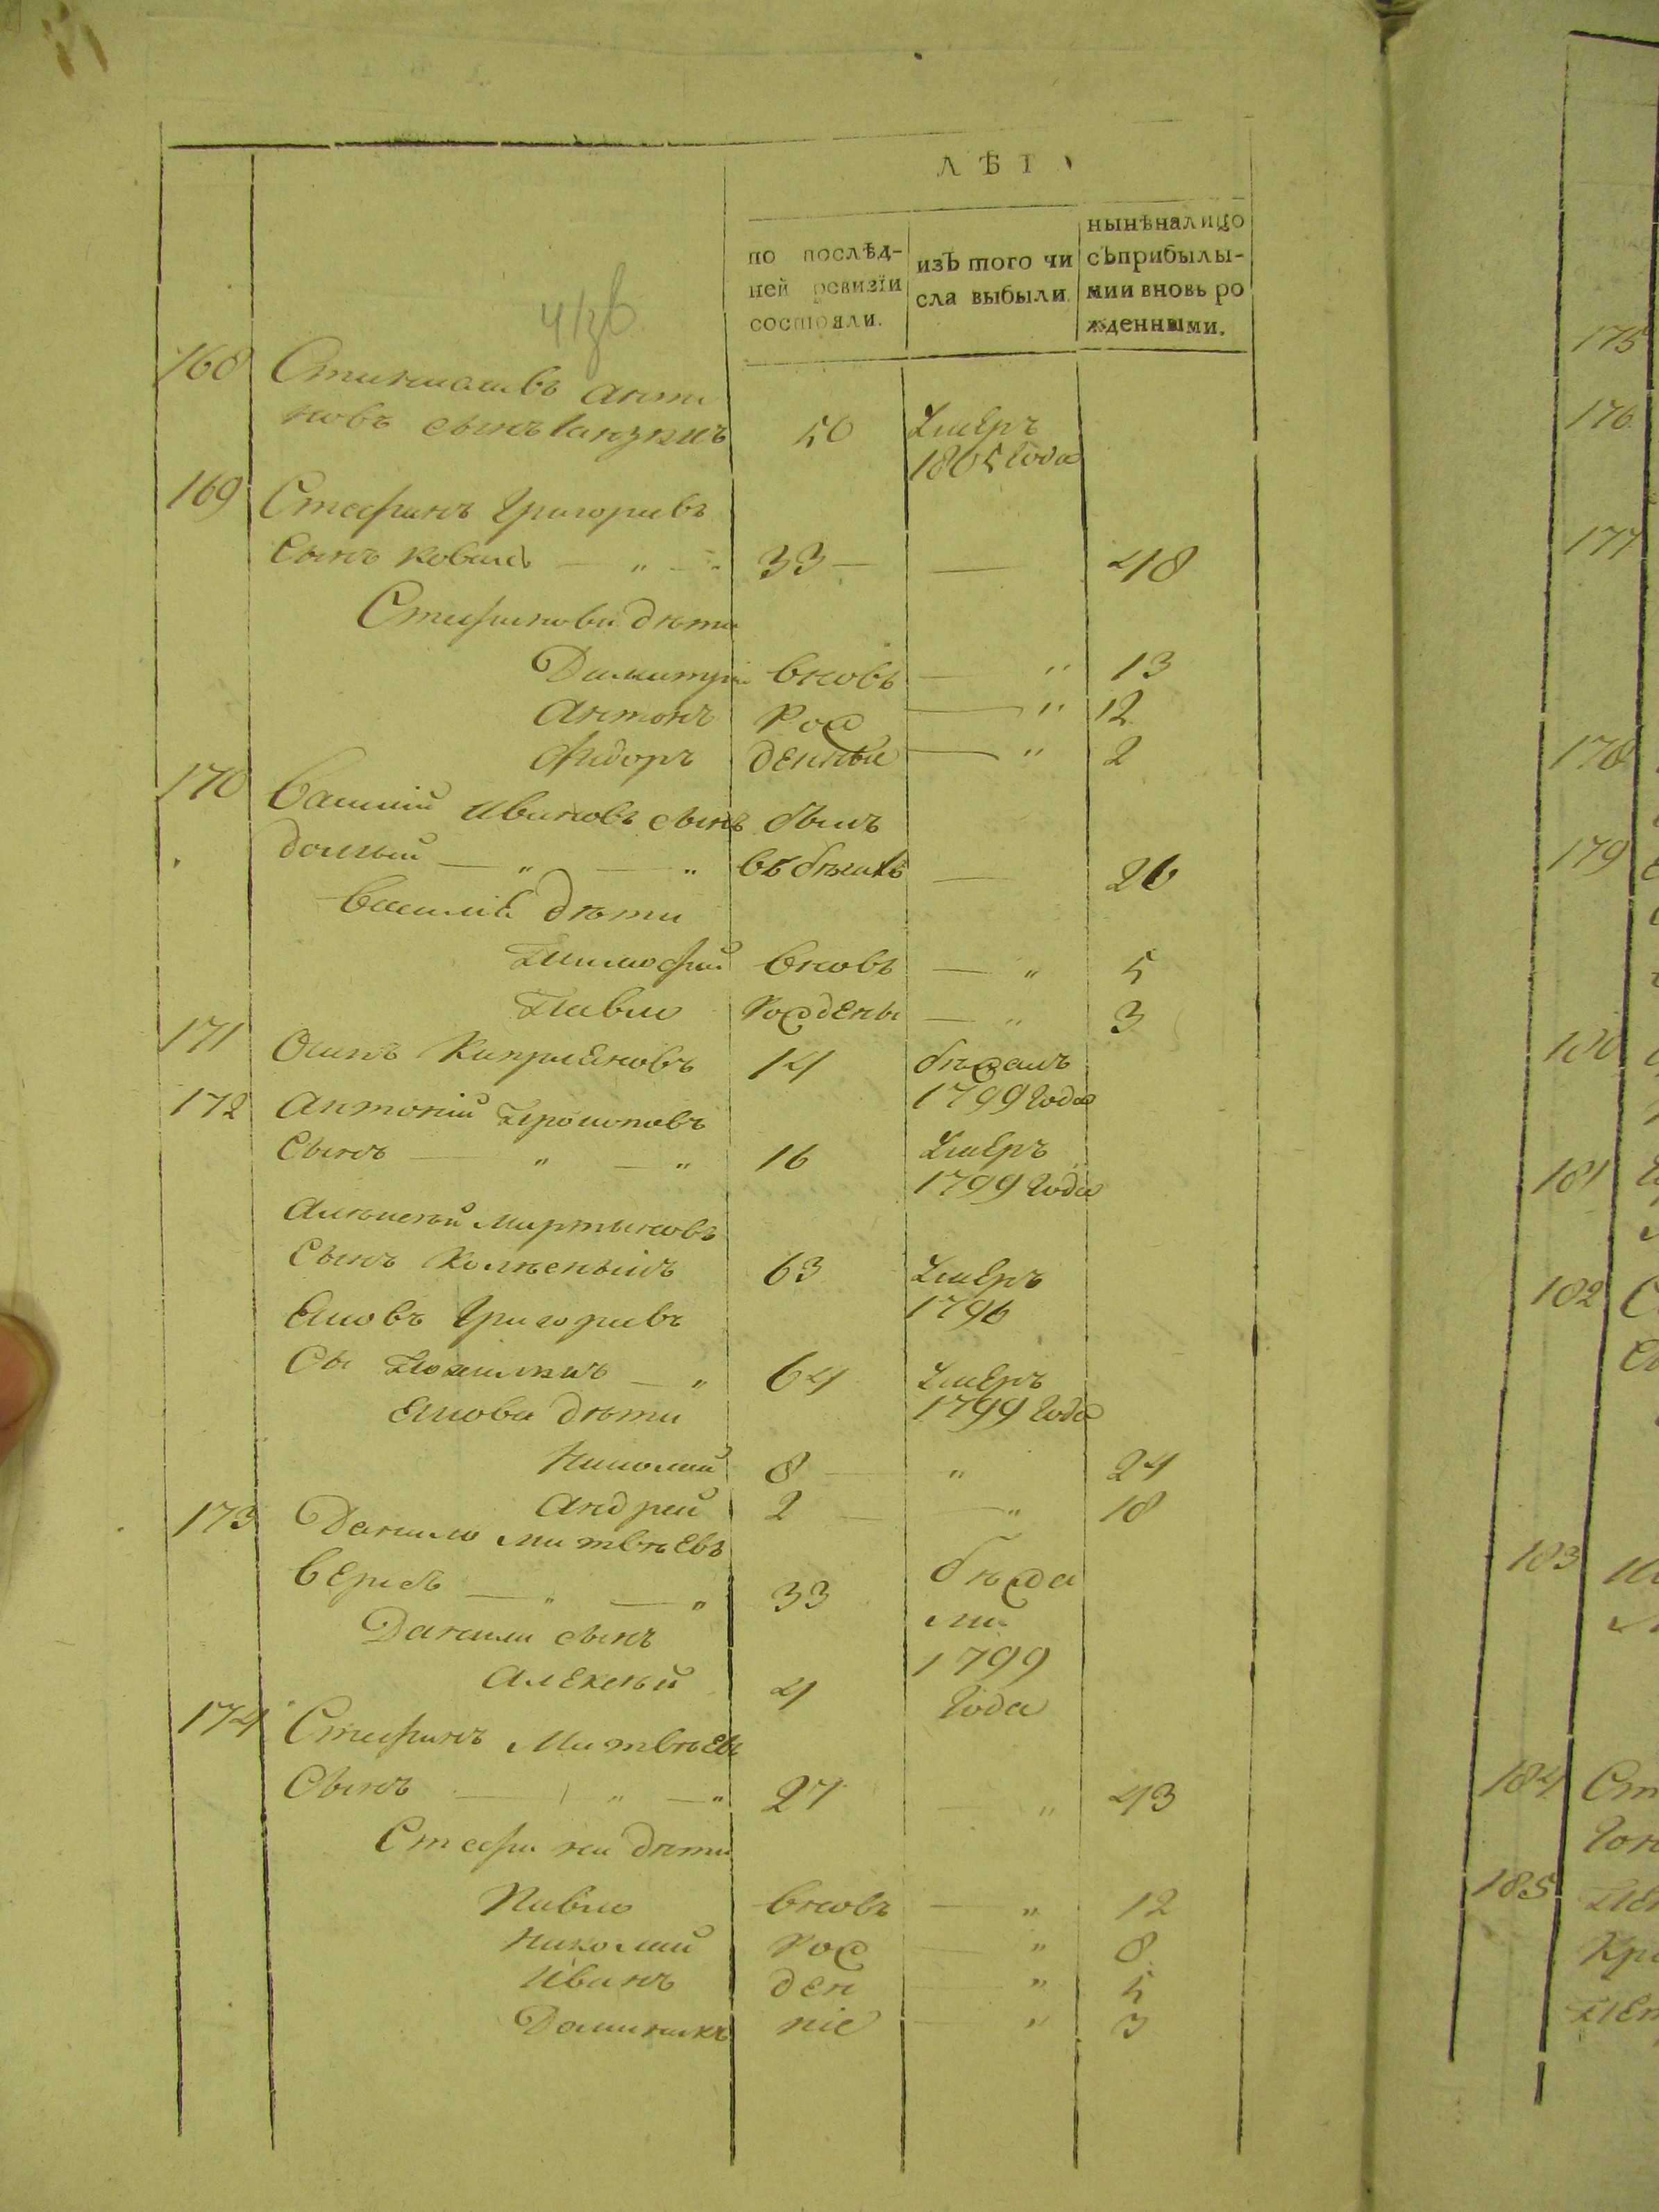 ЛѢТ
по послѣд-
ней ревизїи
состояли.
изъ того чи
сла выбыли.
нынѣналицо
съприбылы-
мии вновь ро
жденными.
168 Станиславъ анто
новъ сынъ 50 Умеръ
1805 Года
169 Стефанъ Григориевъ
Сынъ коваль — „ — 33 — — 48
Стефанови дѣти
Димитрій вновь — „ 13
Антонъ рож — „ 12
Фидоръ денные — „ 2
170 Василій Ивановъ сынъ былъ
долгый — „ — „ въ бѣгахъ — 26
Василія дѣти
Тимофій вновь — „ 5
Павло рождены — „ 3
171 Осипъ Каприяновъ 14 бѣжалъ
1799 Года
172 Антоній
Сынъ — „ — „ 16 Умеръ
1799 Года
Алексѣй Мартыновъ
Сынъ 63 Умеръ
1796
Яковъ Григориевъ
Сы — „ 64 Умеръ
1799 Года
Якова дѣти
Николай 8 — „ 24
Андрей 2 — „ 18
173 Данило Матвѣевъ
— „ — „ 33 бѣжа
ли
Данили сынъ
1799
Алексѣй 4 Года
174 Стефанъ Матвѣевъ
Сынъ — „ — „ 27 — „ 43
Стефана дѣти
Павло вновь — „ 12
Николай рож — „ 8
Иванъ ден — „ 5
Доминикъ ніе — „ 3
175
176
177
178
179
180
181
182
183
184 Ст
185